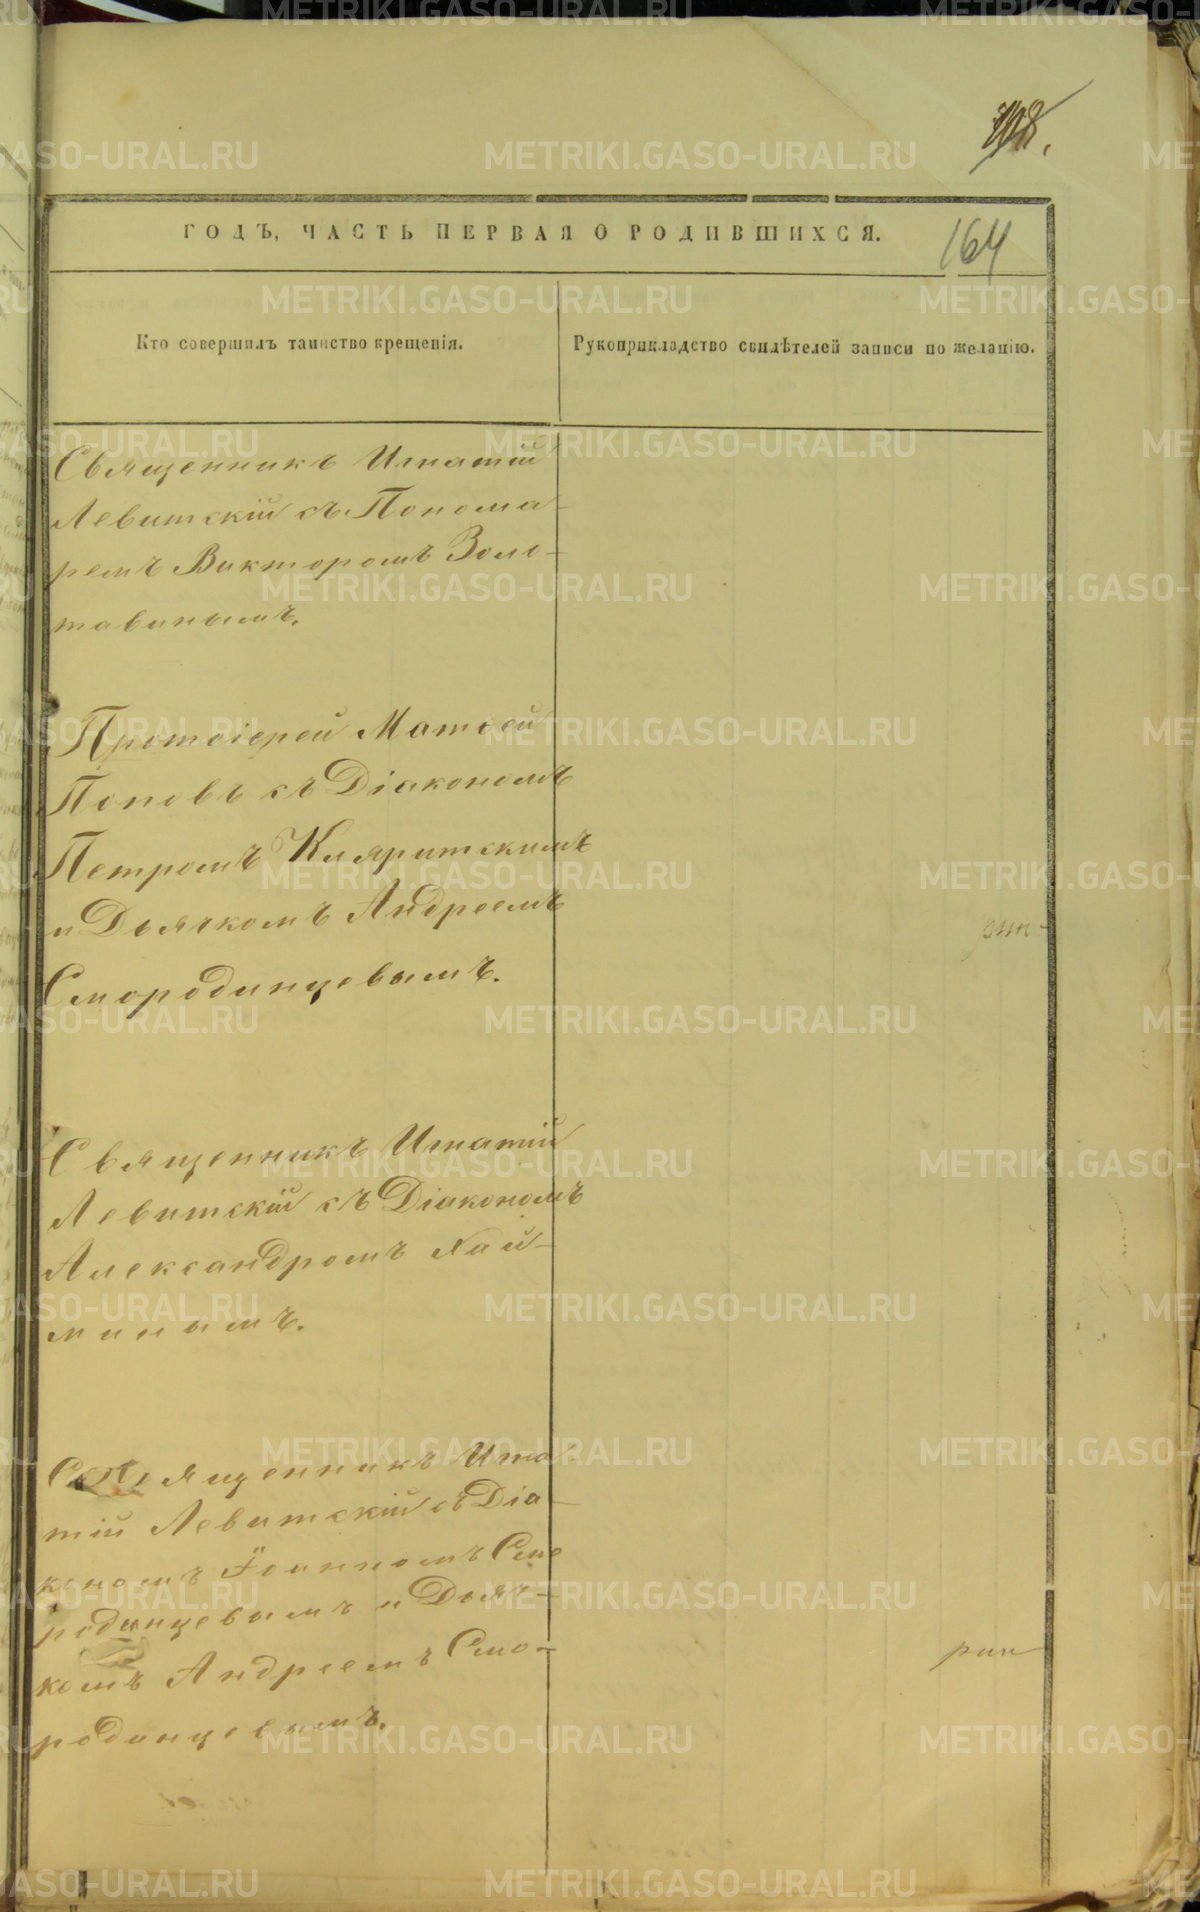 ГОДЪ, ЧАСТЬ ПЕРВАЯ О РОДИВШИХСЯ.
164
Кто совершилъ таинство крещенія.
Рукоприкладство свидѣтелей записи по желанію.
Священникъ Игнатій
Левитскій съ Понома-
ремъ Викторомъ Золо-
тавинымъ.
Протоіерей Матѳей
Поповъ съ Діакономъ
Петромъ
и Дьячкомъ Андреемъ
Смородинцевымъ.
Священникъ Игнатій
Левитскій съ Діакономъ
Александромъ Хай-
минымъ.
Священникъ Игна-
тій Левитскій съ Діа-
кономъ Іоанномъ Смо
родинцевымъ и Дьяч-
комъ Андреемъ Смо-
родинцевымъ.
METRIKI.GASO-URAL.RU